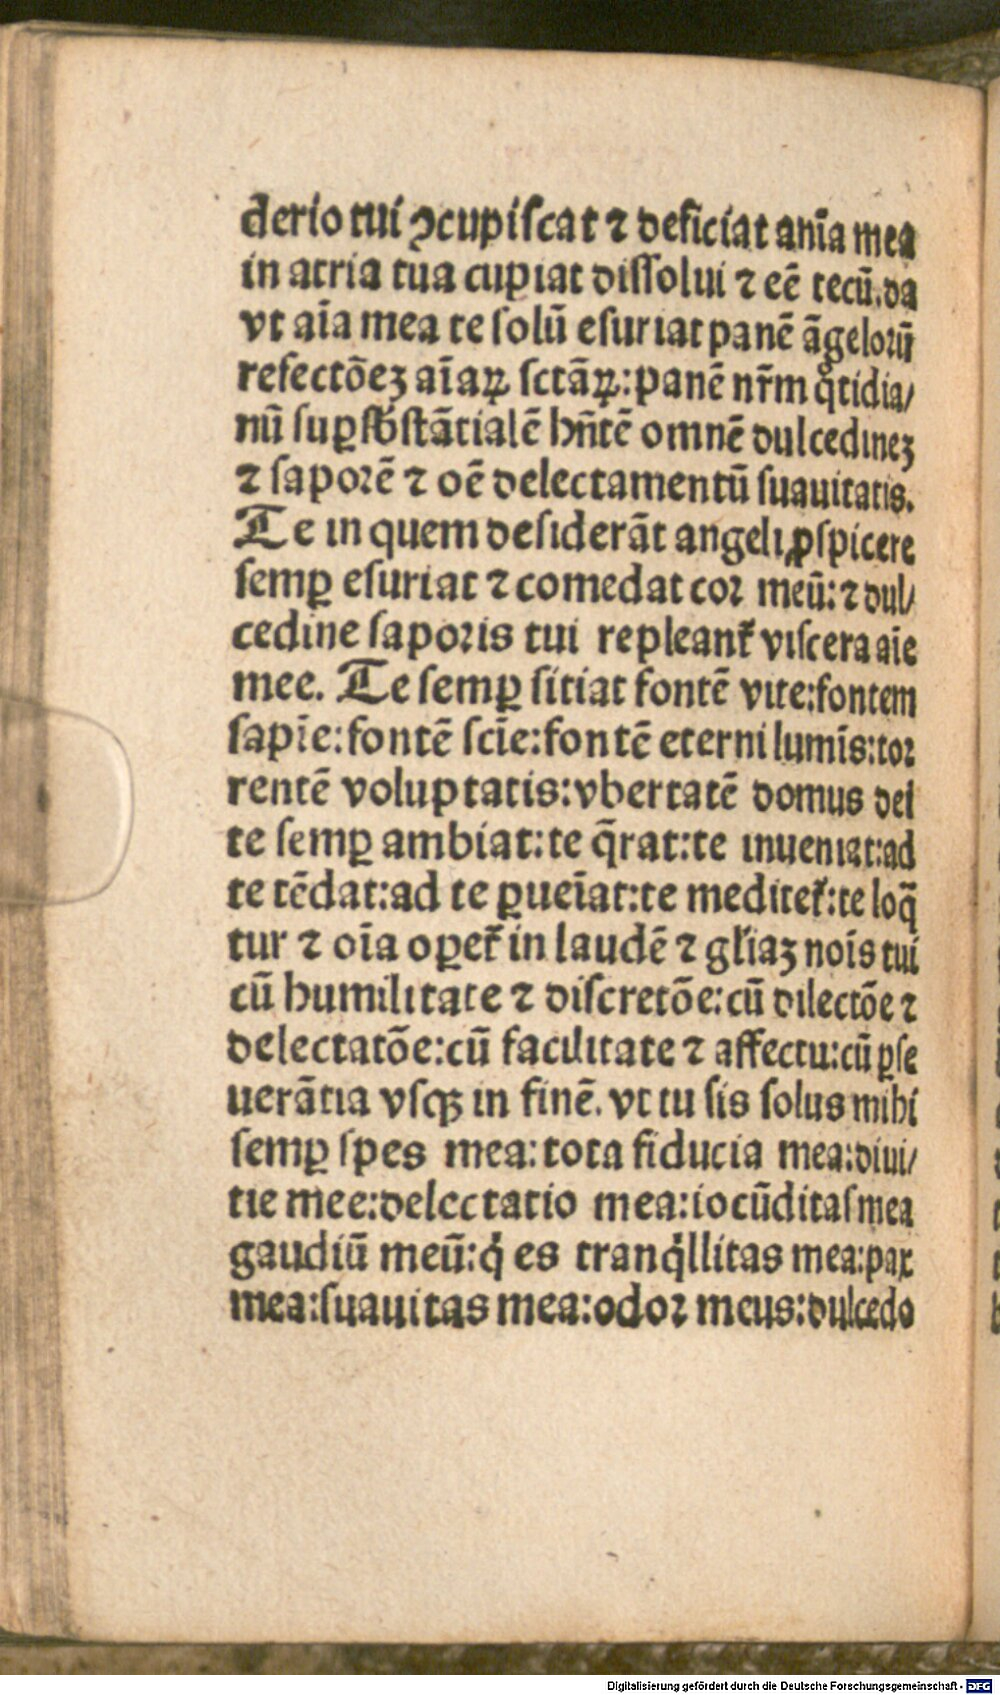 derio tui ꝯcupiſcat ⁊ deficiat anīa mea
in atria tua cupiat diſſolui ⁊ eē tecū.da
vt aīa mea te ſolū eſuriat panē āgeloꝝū
refectōeꝫ aīaꝝ ſctāꝝ:panē nr̄m qͦtidia/
nū ſuꝑſb̄ſtātialē hn̄tē omnē dulcedineꝫ
⁊ ſaporē ⁊ oē delectamentū ſuauitatis.
Te in quem deſiderāt angeli ꝓſpicere
ſemꝑ eſuriat ⁊ comedat cor meū:⁊ dul/
cedine ſaporis tui repleant᷑ viſcera aīe
mee. Te ſemꝑ ſitiat fontē vite:fontem
ſapīe:fontē ſcīe:fontē eterni lumīs:tor
rentē voluptatis:vbertatē domus dei
te ſemꝑ ambiat:te q̄rat:te inueniat:ad
te tēdat:ad te ꝑueīat:te meditet᷑:te loq̄
tur ⁊ oīa oꝑet᷑ in laudē ⁊ gl̄iaꝫ noīs tui
cū humilitate ⁊ diſcretōe:cū dilectōe ⁊
delectatōe:cū facilitate ⁊ affectu:cū ꝑſe
uerātia vſqꝫ in finē. vt tu ſis ſolus mihi
ſemꝑ ſpes mea:tota fiducia mea:diui/
tie mee:delectatio mea:iocūditaſ mea
gaudiū meū:qͥ es tranqͥllitas mea:pax
mea:ſuauitas mea:odor meus:dulcedo
Digitalisierung gefördert durch die Deutsche Forschungsgemeinschaft - DFG